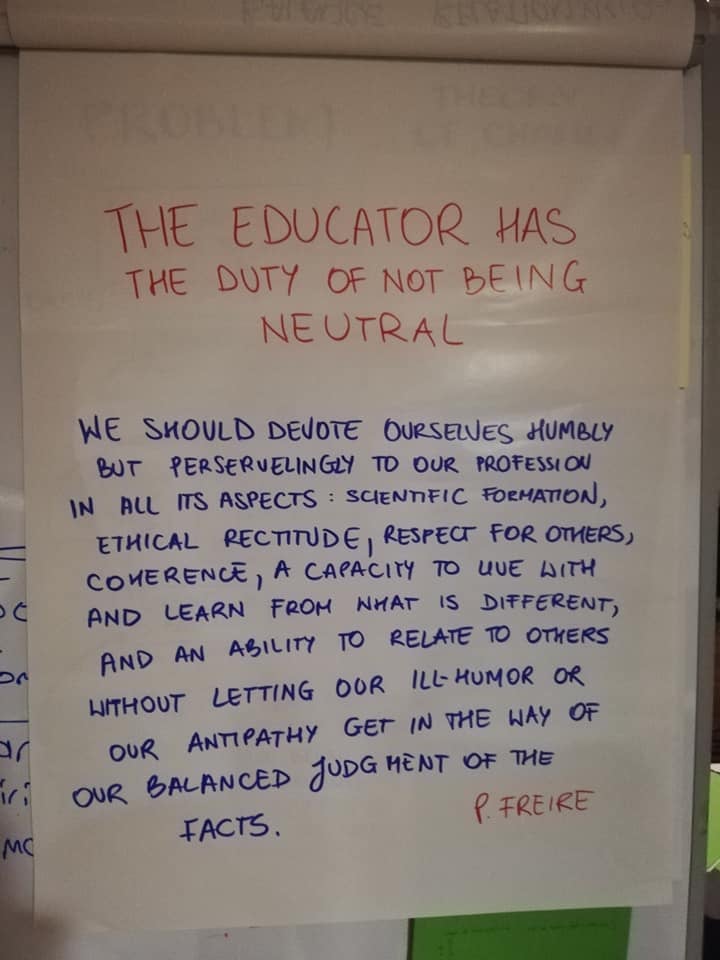 PROBLEM
THEORY
OF CHANGE
THE EDUCATOR HAS
THE DUTY OF NOT BEING
NEUTRAL
WE SHOULD DEVOTE OURSELVES HUMBLY
BUT PERSERVELINGLY TO OUR PROFESSION
IN ALL ITS ASPECTS : SCIENTIFIC FORMATION,
ETHICAL RECTITUDE, RESPECT FOR OTHERS,
COHERENCE, A CAPACITY TO LIVE WITH
AND LEARN FROM WHAT IS DIFFERENT,
AND AN ABILITY TO RELATE TO OTHERS
WITHOUT LETTING OUR ILL-HUMOR OR
OUR ANTIPATHY GET IN THE WAY OF
OUR BALANCED JUDGMENT OF THE
FACTS.
P. FREIRE